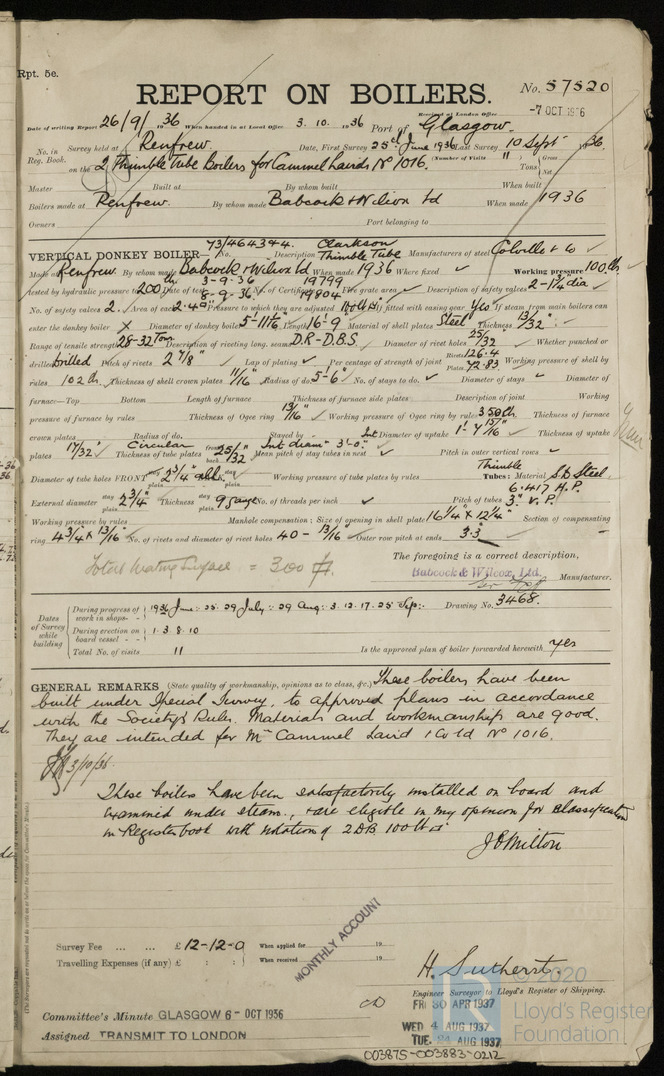 Rpt. 5e.
REPORT ON BOILERS.
No. 57520
Received at London Office -7 OCT 1936
Date of writing Report 26/9/1936 When handed in at Local Office 3. 10. 1936 Port of Glasgow.
No. in Reg. Book. Survey held at Renfrew. Date, First Survey 25th June 1936 Last Survey 10 Sept 1936.
on the 2 Thimble Tube Boilers for Cammel Lairds No 1016. (Number of Visits 11) Tons Gross Net
Master Built at By whom built When built
Boilers made at Renfrew. By whom made Babcock & Wilcox Ltd When made 1936
Owners Port belonging to
VERTICAL DONKEY BOILER No. 73/4643 & 4. Description Clarkson Thimble Tube Manufacturers of steel Colville & Co
Made at Renfrew By whom made Babcock & Wilcox Ltd When made 1936 Where fixed Working pressure 100 lb
tested by hydraulic pressure to 200 lb Date of test 3-9-36 8-9-36. No. of Certificate 19799 19804 Fire grate area Description of safety valves 2-1¾" dia
No. of safety valves 2. Area of each 2.40" Pressure to which they are adjusted 100 lb If fitted with easing gear Yes If steam from main boilers can
enter the donkey boiler X Diameter of donkey boiler 5-11 1/16" Length 16-9 Material of shell plates Steel Thickness 13/32"
Range of tensile strength 28-32 Tons Description of riveting long. seams D.R-D.B.S Diameter of rivet holes 25/32 Whether punched or
drilled drilled Pitch of rivets 2 7/8" Lap of plating Per centage of strength of joint Rivets 126.4 Plates 72.83 Working pressure of shell by
rules 102 lb. Thickness of shell crown plates 11/16" Radius of do. 5-6" No. of stays to do. Diameter of stays Diameter of
furnace—Top Bottom Length of furnace Thickness of furnace side plates Description of joint Working
pressure of furnace by rules Thickness of Ogee ring 13/16" Working pressure of Ogee ring by rules 350 lb Thickness of furnace
crown plates Radius of do. Stayed by Int Diameter of uptake 1'. 7 15/16" Thickness of uptake
plates 17/32" Circular front back 25/32 Int diam 3'-0" Mean pitch of stay tubes in nest Pitch in outer vertical rows
Diameter of tube holes FRONT stay plain 2¾" BACK stay plain Working pressure of tube plates by rules Thimble Tubes: Material S.D Steel.
External diameter stay plain 2¾" Thickness stay plain 9 gauge No. of threads per inch Pitch of tubes 6.417 H.P. 3" V.P.
Working pressure by rules Manhole compensation; Size of opening in shell plate 16¼" x 12¼" Section of compensating
ring 4¾" x 13/16" No. of rivets and diameter of rivet holes 40 - 13/16" Outer row pitch at ends 3.3
Total heating surface = 300
The foregoing is a correct description,
Babcock & Wilcox, Ltd.
Manufacturer.
Dates of Survey while building
During progress of work in shops - - 1936 June: 25. 29 July: 29 Aug: 3. 12. 17. 25 Sep: Drawing No. 3468.
During erection on board vessel - - 1. 3. 8. 10
Total No. of visits 11 Is the approved plan of boiler forwarded herewith yes
GENERAL REMARKS (State quality of workmanship, opinions as to class, &c.) These boilers have been
built under Special Survey, to approved plans in accordance
with the Society's Rules. Materials and workmanship are good.
They are intended for Mr Cammel Laird & Co Ld No 1016.
3/10/36.
These boilers have been satisfactorily installed on board and
examined under steam, & are eligible in my opinion for classification
in Register book with notation of 2DB 100 lbs
J C Milton
Survey Fee ... ... £ 12-12-0 When applied for 19
Travelling Expenses (if any) £ : : When received 19
MONTHLY ACCOUNT
H. Sutherst.
Engineer Surveyor to Lloyd's Register of Shipping.
FRI 30 APR 1937
Committee's Minute GLASGOW 6- OCT 1936
WED 4 AUG 1937
Assigned TRANSMIT TO LONDON
TUE. 24 AUG 1937
003875-003883-0212
© 2020
Lloyd's Register
Foundation